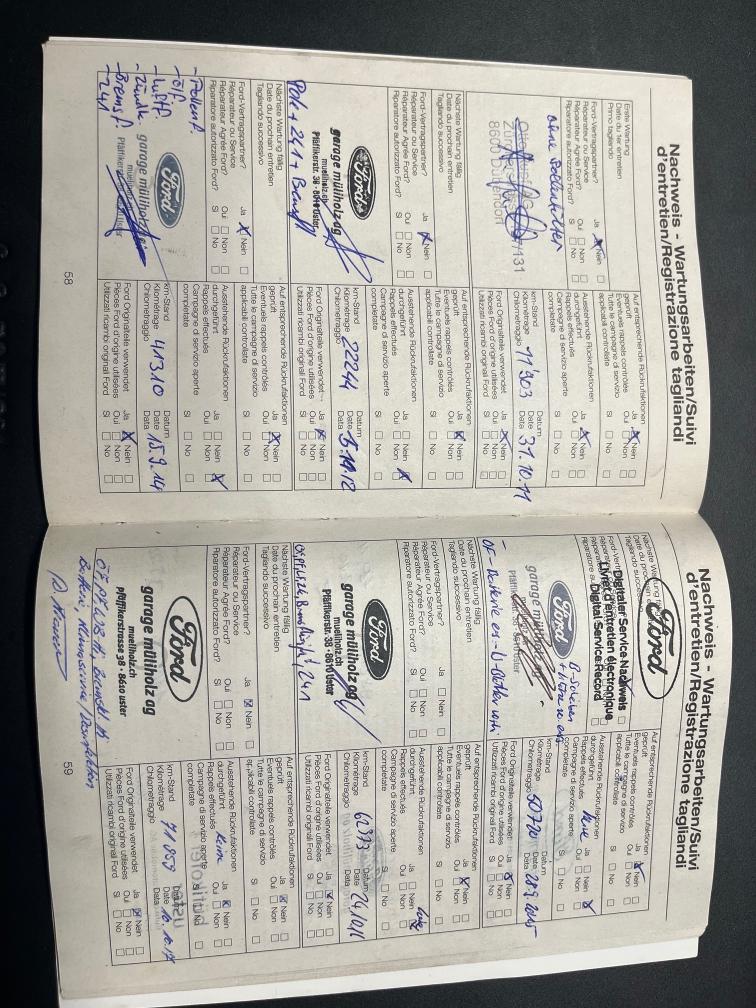 Nachweis - Wartungsarbeiten/Suivi
d'entretien/Registrazione tagliandi
Erste Wartung
Date du 1er entretien
Primo tagliando
Ford-Vertragspartner? Ja Nein
Réparateur ou Service
Réparateur Agréé Ford? Oui Non
Riparatore autorizzato Ford? Si No
ohne Pollenfilter
8600 Dübendorf
Auf entsprechende Rückrufaktionen
geprüft Ja Nein
Eventuels rappels contrôlés Oui Non
Tutte le campagne di servizio
applicabili controllate Si No
Ausstehende Rückrufaktionen
durchgeführt Ja Nein
Rappels effectués Oui Non
Campagne di servizio aperte
completate Si No
km-Stand Datum
Kilométrage 11'903 Date 31.10.11
Chilometraggio Data
Ford Originalteile verwendet Ja Nein
Pièces Ford d'origine utilisées Oui Non
Utilizzati ricambi original Ford Si No
Nächste Wartung fällig
Date du prochain entretien
Tagliando successivo
Ford-Vertragspartner? Ja Nein
Réparateur ou Service
Réparateur Agréé Ford? Oui Non
Riparatore autorizzato Ford? Si No
Ford
garage müliholz ag
mueliholz.ch
Pfäffikerstr. 38 · 8610 Uster
Auf entsprechende Rückrufaktionen
geprüft Ja Nein
Eventuels rappels contrôlés Oui Non
Tutte le campagne di servizio
applicabili controllate Si No
Ausstehende Rückrufaktionen
durchgeführt Ja Nein
Rappels effectués Oui Non
Campagne di servizio aperte
completate Si No
km-Stand Datum
Kilométrage 22244 Date
Chilometraggio Data
Ford Originalteile verwendet Ja Nein
Pièces Ford d'origine utilisées Oui Non
Utilizzati ricambi original Ford Si No
Nächste Wartung fällig
Date du prochain entretien
Tagliando successivo
Ford-Vertragspartner? Ja Nein
Réparateur ou Service
Réparateur Agréé Ford? Oui Non
Riparatore autorizzato Ford? Si No
Ford
garage müliholz ag
- Pollenf.
- Ölf.
- Luftf.
- Zündk.
- Bremsf.
- 241
Auf entsprechende Rückrufaktionen
geprüft Ja Nein
Eventuels rappels contrôlés Oui Non
Tutte le campagne di servizio
applicabili controllate Si No
Ausstehende Rückrufaktionen
durchgeführt Ja Nein
Rappels effectués Oui Non
Campagne di servizio aperte
completate Si No
km-Stand Datum
Kilométrage 41310 Date 15.9.14
Chilometraggio Data
Ford Originalteile verwendet Ja Nein
Pièces Ford d'origine utilisées Oui Non
Utilizzati ricambi original Ford Si No
58
Nachweis - Wartungsarbeiten/Suivi
d'entretien/Registrazione tagliandi
Ford
Digitaler Service Nachweis
Livret d'entretien électronique
Digital Service Record
Ford
garage müliholz ag
B-Scheiben
Auf entsprechende Rückrufaktionen
geprüft Ja Nein
Eventuels rappels contrôlés Oui Non
Tutte le campagne di servizio
applicabili controllate Si No
Ausstehende Rückrufaktionen
durchgeführt Ja Nein
Rappels effectués Oui Non
Campagne di servizio aperte
completate Si No
km-Stand Datum
Kilométrage 50720 Date
Chilometraggio Data
Ford Originalteile verwendet Ja Nein
Pièces Ford d'origine utilisées Oui Non
Utilizzati ricambi original Ford Si No
Nächste Wartung fällig
Date du prochain entretien
Tagliando successivo
Ford-Vertragspartner? Ja Nein
Réparateur ou Service
Réparateur Agréé Ford? Oui Non
Riparatore autorizzato Ford? Si No
Ford
garage müliholz ag
mueliholz.ch
Pfäffikerstr. 38 · 8610 Uster
Auf entsprechende Rückrufaktionen
geprüft Ja Nein
Eventuels rappels contrôlés Oui Non
Tutte le campagne di servizio
applicabili controllate Si No
Ausstehende Rückrufaktionen
durchgeführt Ja Nein
Rappels effectués Oui Non
Campagne di servizio aperte
completate Si No
km-Stand Datum
Kilométrage Date
Chilometraggio Data
Ford Originalteile verwendet Ja Nein
Pièces Ford d'origine utilisées Oui Non
Utilizzati ricambi original Ford Si No
Nächste Wartung fällig
Date du prochain entretien
Tagliando successivo
Ford-Vertragspartner? Ja Nein
Réparateur ou Service
Réparateur Agréé Ford? Oui Non
Riparatore autorizzato Ford? Si No
Ford
garage müliholz ag
mueliholz.ch
pfäffikerstrasse 38 - 8610 uster
Auf entsprechende Rückrufaktionen
geprüft Ja Nein
Eventuels rappels contrôlés Oui Non
Tutte le campagne di servizio
applicabili controllate Si No
Ausstehende Rückrufaktionen
durchgeführt Ja Nein
Rappels effectués Oui Non
Campagne di servizio aperte
completate Si No
km-Stand Datum
Kilométrage 71859 Date 10.10.17
Chilometraggio Data
Ford Originalteile verwendet Ja Nein
Pièces Ford d'origine utilisées Oui Non
Utilizzati ricambi original Ford Si No
59